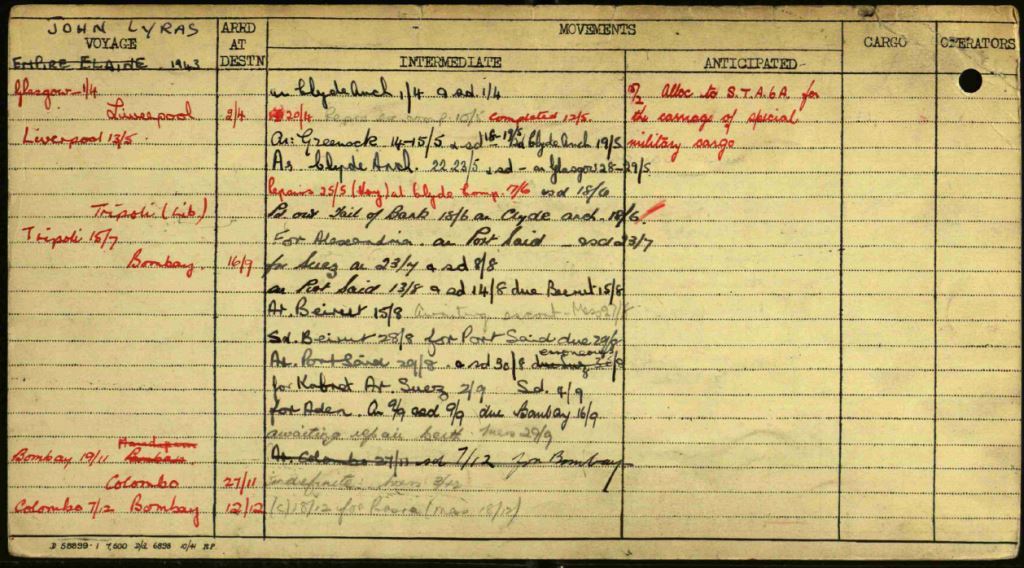 JOHN LYRAS
VOYAGE
ARRD AT DESTN
MOVEMENTS
CARGO
OPERATORS
EMPIRE ELAINE. 1943
INTERMEDIATE
ANTICIPATED
Glasgow - 1/4
Liverpool 2/4
Liverpool 13/5
Tripoli (Lib)
Tripoli 15/7
Bombay. 16/9
Bombay 19/11
Colombo 27/11
Colombo 7/12 Bombay 12/12
in Clyde Anch 1/4 & sd. 1/4
20/4 completed 12/5.
Ar. Greenock 14-15/5 & sd 18-19/5 Clyde Anch 19/5
Ar. Clyde Anch. 22-23/5, sd - ar Glasgow 28-29/5
Repairs 25/5 at Clyde Comp. 7/6 sd 18/6
Tail of Bank 18/6 ar Clyde anch. 18/6
For Alexandria. ar Port Said - sd 23/7
for Suez ar 23/7 & sd 8/8
ar Port Said 13/8 & sd 14/8 due Beirut 15/8
Ar. Beirut 15/8 Awaiting escort - Mes 27/8
Sd. Beirut 28/8 for Port Said due 29/8
Ar. Port Said 29/8. & sd 30/8 erroneous
for Kabret Ar. Suez 2/9 Sd. 4/9
for Aden. Ar 9/9 & sd 9/9 due Bombay 16/9
awaiting repair berth Mes 29/9
Ar. Colombo 27/11 sd 7/12 for Bombay
Indefinite.
(c) 18/12 for (Mes 18/12)
Alloc to S.T.A. 6A. for
the carriage of special
military cargo
D 58899-1 7,500 D/d 6898 10/41 R.P.